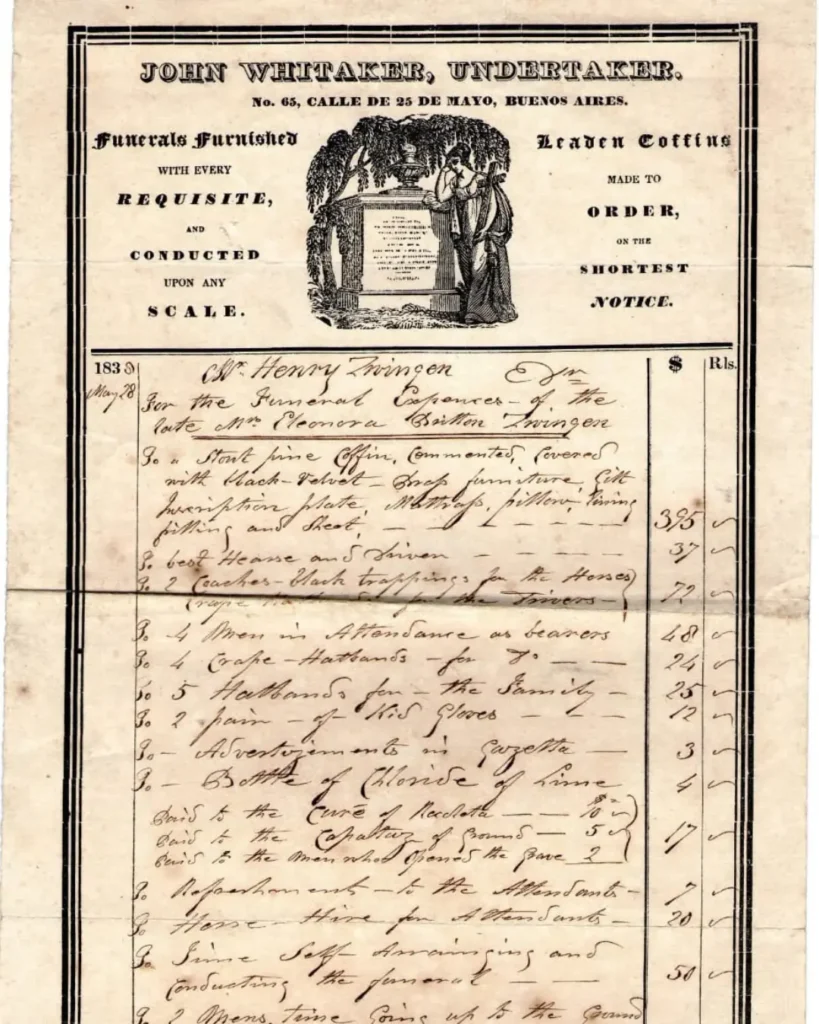 JOHN WHITAKER, UNDERTAKER.
No. 65, CALLE DE 25 DE MAYO, BUENOS AIRES.
Funerals Furnished
WITH EVERY
REQUISITE,
AND
CONDUCTED
UPON ANY
SCALE.
Leaden Coffins
MADE TO
ORDER,
ON THE
SHORTEST
NOTICE.
$ Rls.
183 Mr. Henry Zwingen
May 28 For the Funeral Expences of the
late Mrs Eleonora Britton Zwingen
To a Stout pine Coffin, Covered
with black Velvet furniture Gilt
Inscription plate, Mattrass, pillow, lining
and Sheet, 395
To best Hearse and Driver 37
To 2 Coaches black trappings for the Horses
Crape for the Drivers 72
To 4 Men in Attendance as bearers 48
To 4 Crape Hatbands for Do 24
To 5 Hatbands for the Family 25
To 2 pair of Kid Gloves 12
To Advertisements in Gazetta 3
To Bottle of Chloride of Lime 4
Paid to the Curé of 10
Paid to the Capataz of Ground 5 17
Paid to the Men who Opened the Grave 2
To Refreshments to the Attendants 7
To Horse Hire for Attendants 20
To Time Self Arrainging and
Conducting the funeral 50
To 2 Mens time Going up to the Ground